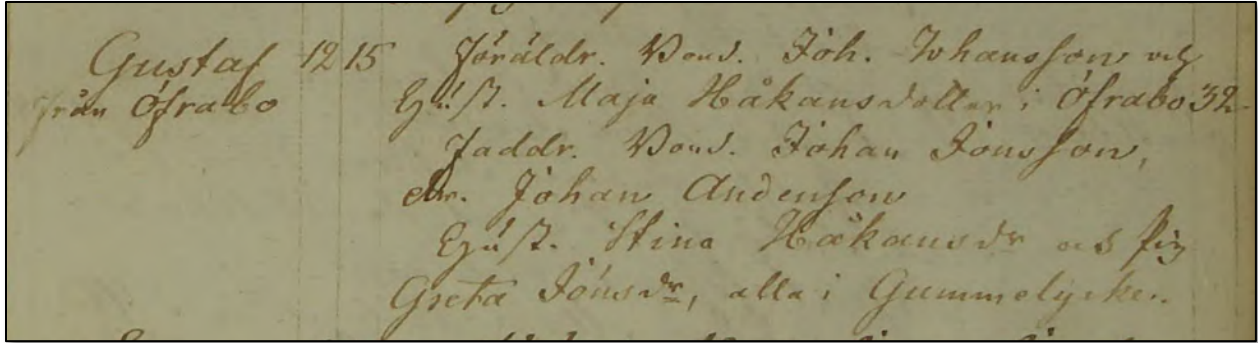 Gustaf 12 15 Föräldr. Bond. Joh. Johansson och
från Öfrabo Hust. Maja Håkansdotter i Öfrabo 32
Faddr. Bond. Johan Jonsson,
dr. Johan Andersson
Hust. Stina Håkansdr och Pig
Greta Jönsdr, alla i Gummelycke.